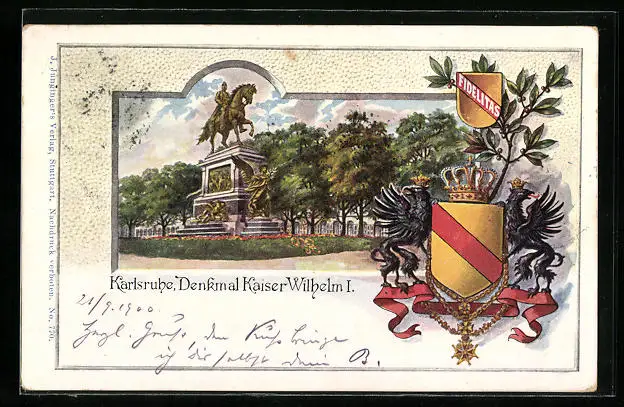 J. Junginger's Verlag, Stuttgart. Nachdruck verboten. No. 770.
FIDELITAS
Karlsruhe, Denkmal Kaiser Wilhelm I.
21/9. 1900.
Herzl. Gruß, den Kuß bringe
ich dir selbst dein B.